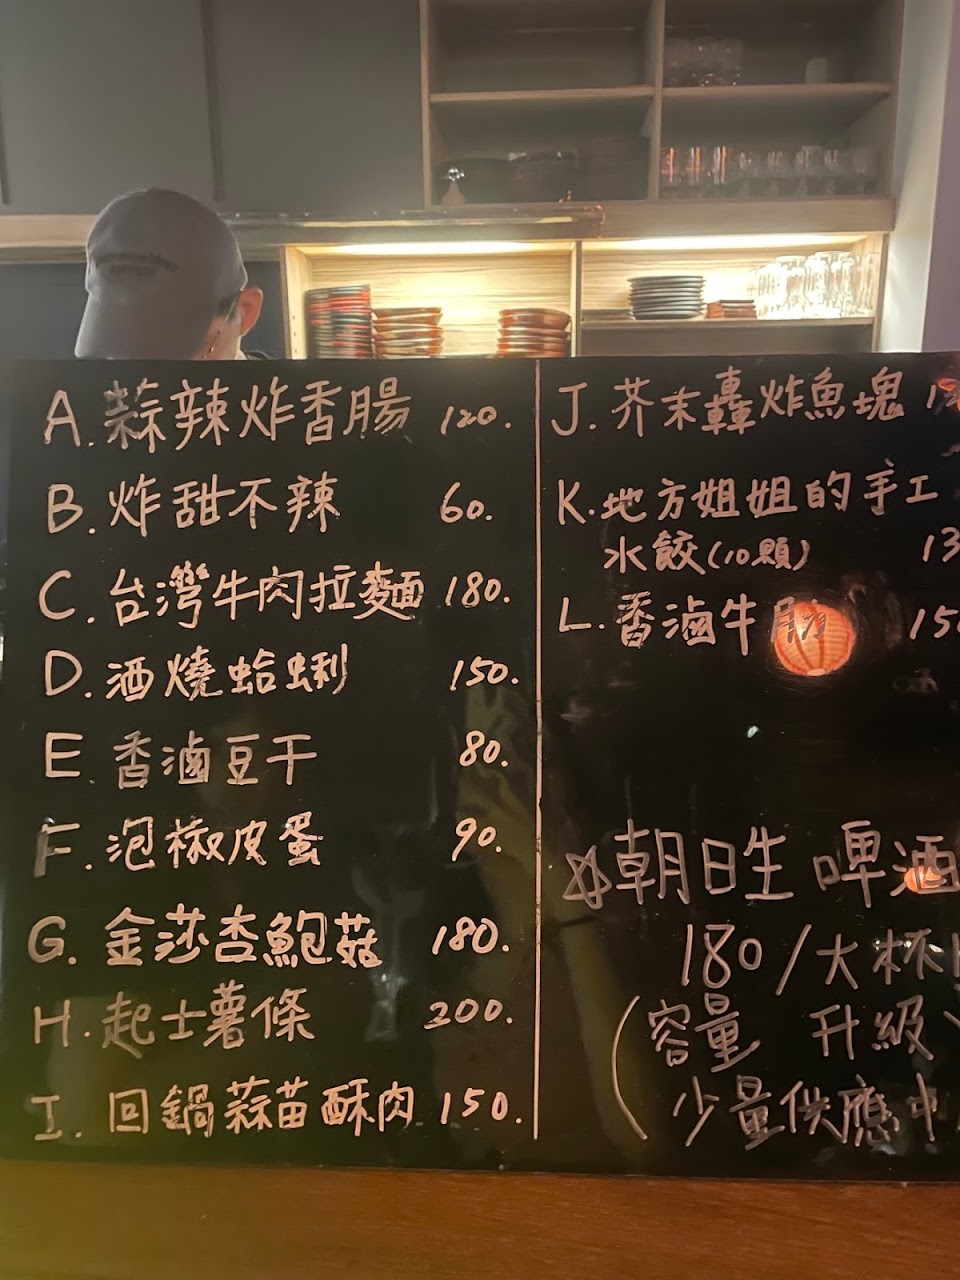 A. 蒜辣炸香腸 120.
B. 炸甜不辣 60.
C. 台灣牛肉拉麵 180.
D. 酒燒蛤蜊 150.
E. 香滷豆干 80.
F. 泡椒皮蛋 90.
G. 金莎杏鮑菇 180.
H. 起士薯條 200.
I. 回鍋蒜苗酥肉 150.
J. 芥末轟炸魚塊
K. 地方姐姐的手工
水餃(10顆) 13
L. 香滷牛肋 15
☆朝日生啤酒
180/大杯!
(容量 升級、
少量供應中